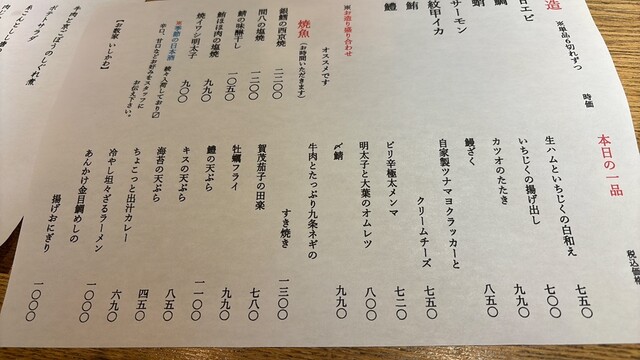 造
※単品6切れずつ
時価
エビ
鯛
蛸
サーモン
紋甲イカ
鮪
鱧
※お造り盛り合わせ
オススメです
焼魚
(お時間いただきます)
銀鱈の西京焼 一二〇〇
間八の塩焼 一二〇〇
鯖の味醂干し 一〇五〇
鮪ほほ肉の塩焼 九九〇
焼イワシ明太子 九〇〇
※季節の日本酒 続々入荷しており〼
辛口、甘口などお好みをスタッフに
お伝え下さい。
【お飲家 いしかわ】
牛肉と京ごぼうのしぐれ煮
ポテトサラダ
本日の一品
税込価格
生ハムといちじくの白和え 七五〇
いちじくの揚げ出し 七〇〇
カツオのたたき 九九〇
鰻ざく 八五〇
自家製ツナマヨクラッカーと
クリームチーズ 七五〇
ピリ辛極太メンマ 七二〇
明太子と大葉のオムレツ 八〇〇
〆鯖 九九〇
牛肉とたっぷり九条ネギの
すき焼き 一三〇〇
賀茂茄子の田楽 七八〇
牡蠣フライ 九九〇
鱧の天ぷら 一一〇〇
キスの天ぷら 八五〇
海苔の天ぷら 四五〇
ちょこっと出汁カレー 六九〇
冷やし坦々ざるラーメン 一〇〇〇
あんかけ金目鯛めしの
揚げおにぎり 一〇〇〇